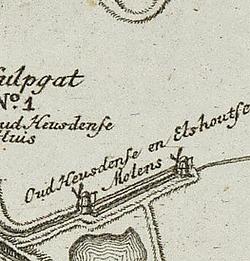 ulpgat
N.o 1
ud Heusdense
Huis
Oud Heusdense en Elshoutse
Molens